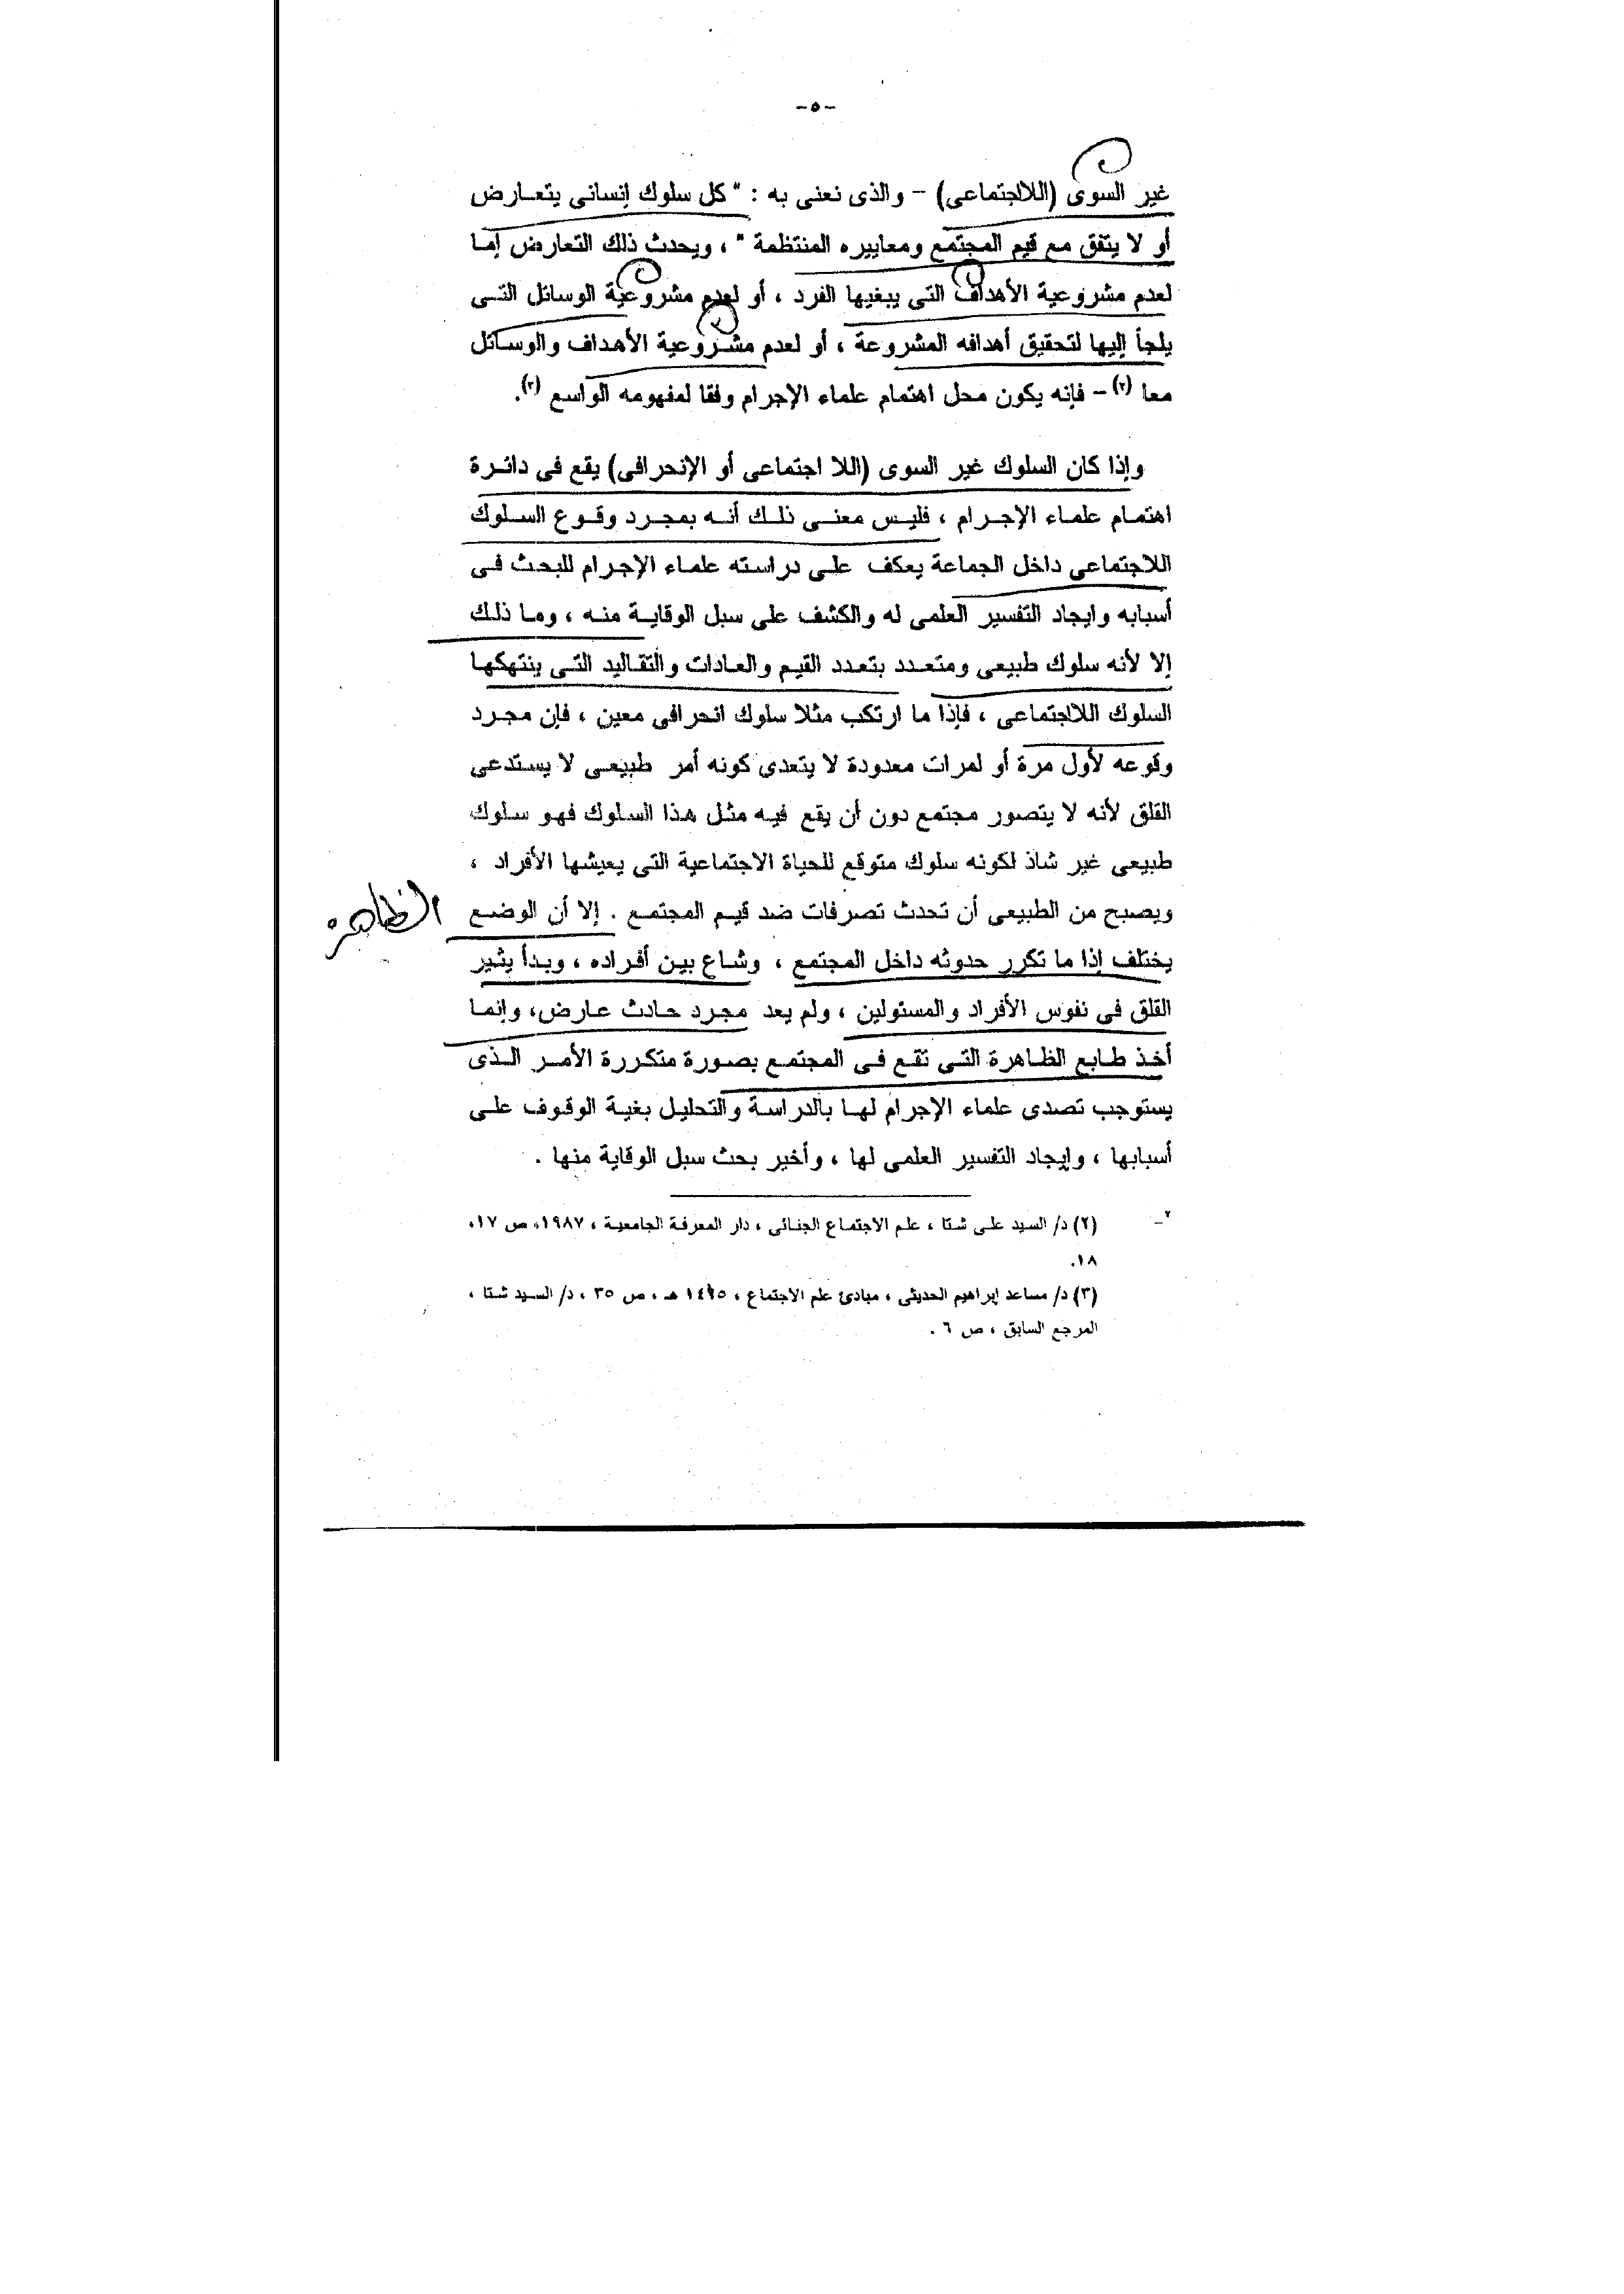 -٥-
غير السوى (اللااجتماعى) - والذى نعنى به : " كل سلوك إنسانى يتعارض
أو لا يتفق مع قيم المجتمع ومعاييره المنتظمة " ، ويحدث ذلك التعارض إما
لعدم مشروعية الأهداف التى يبغيها الفرد ، أو لعدم مشروعية الوسائل التى
يلجأ إليها لتحقيق أهدافه المشروعة ، أو لعدم مشروعية الأهداف والوسائل
معا (٢) - فإنه يكون محل اهتمام علماء الإجرام وفقا لمفهومه الواسع (٣).
وإذا كان السلوك غير السوى (اللا اجتماعى أو الإنحرافى) يقع فى دائرة
اهتمام علماء الإجرام ، فليس معنى ذلك أنه بمجرد وقوع السلوك
اللاجتماعى داخل الجماعة يعكف على دراسته علماء الإجرام للبحث فى
أسبابه وايجاد التفسير العلمى له والكشف على سبل الوقاية منه ، وما ذلك
إلا لأنه سلوك طبيعى ومتعدد بتعدد القيم والعادات والتقاليد التى ينتهكها
السلوك اللااجتماعى ، فإذا ما ارتكب مثلا سلوك انحرافى معين ، فإن مجرد
وقوعه لأول مرة أو لمرات معدودة لا يتعدى كونه أمر طبيعى لا يستدعى
القلق لأنه لا يتصور مجتمع دون أن يقع فيه مثل هذا السلوك فهو سلوك
طبيعى غير شاذ لكونه سلوك متوقع للحياة الاجتماعية التى يعيشها الأفراد ،
ويصبح من الطبيعى أن تحدث تصرفات ضد قيم المجتمع . إلا أن الوضع
الظاهره
يختلف إذا ما تكرر حدوثه داخل المجتمع ، وشاع بين أفراده ، وبدأ يثير
القلق فى نفوس الأفراد والمسئولين ، ولم يعد مجرد حادث عارض، وإنما
أخذ طابع الظاهرة التى تقع فى المجتمع بصورة متكررة الأمر الذى
يستوجب تصدى علماء الإجرام لها بالدراسة والتحليل بغية الوقوف على
أسبابها ، وإيجاد التفسير العلمى لها ، وأخير بحث سبل الوقاية منها .
٢-
(٢) د/ السيد على شتا ، علم الاجتماع الجنائى ، دار المعرفة الجامعية ، ١٩٨٧، ص ١٧،
١٨.
(٣) د/ مساعد إبراهيم الحديثى ، مبادئ علم الاجتماع ، ١٤١٥ هـ ، ص ٣٥ ، د/ السيد شتا ،
المرجع السابق ، ص ٦ .